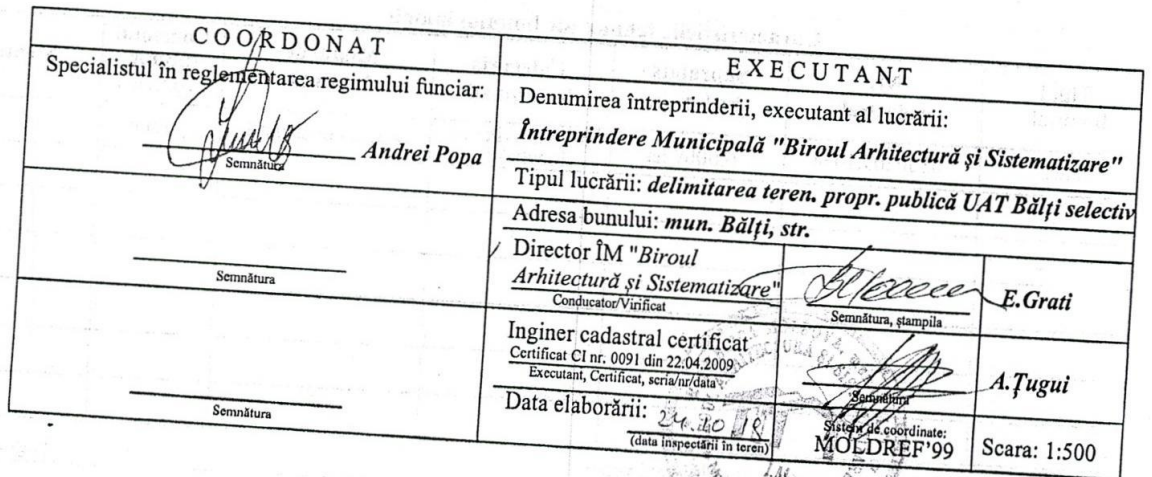 COORDONAT
Specialistul în reglementarea regimului funciar:
Semnătura
Andrei Popa
Semnătura
Semnătura
EXECUTANT
Denumirea întreprinderii, executant al lucrării:
Întreprindere Municipală "Biroul Arhitectură și Sistematizare"
Tipul lucrării: delimitarea teren. propr. publică UAT Bălți selectiv
Adresa bunului: mun. Bălți, str.
Director ÎM "Biroul
Arhitectură și Sistematizare"
Conducator/Virificat
Semnătura, ștampila
E.Grati
Inginer cadastral certificat
Certificat CI nr. 0091 din 22.04.2009
Executant, Certificat, scria/nr/data
Semnătura
A.Țugui
Data elaborării: 24.10.18
(data inspectării în teren)
Sistem de coordonate:
MOLDREF'99
Scara: 1:500